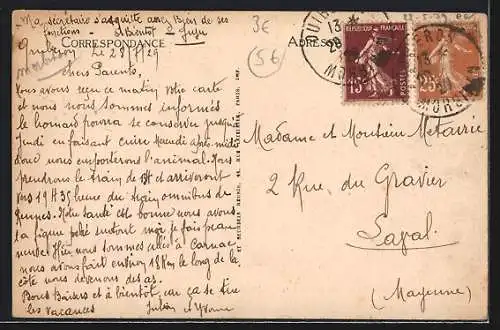 Ma secrétaire s'acquitte assez bien de ses
fonctions. à Bientôt Juju
3€
(5€)
CORRESPONDANCE
ADRESSE
RÉPUBLIQUE FRANÇAISE
15c POSTES
25c
13
MORBIHAN
le 28/8/29
morbihan
Chers Parents,
Vous avons reçu ce matin votre carte
et nous nous sommes informés
le homard pourra se conserver jusqu'à
Jeudi en faisant cuire Mercredi après-midi
donc nous emporterons l'animal. Nous
prendrons le train de et arriverons
vers 19H35 heure du train omnibus de
Rennes. Notre santé est bonne nous avons
la figure pelée surtout moi je fais peau
neuve. Hier nous sommes allés à Carnac
nous avons fait environ 18 Km le long de la
côte nous devenons des as.
Bons Baisers et à bientôt car ça se tire
les vacances Julien et Yvonne
Madame et Monsieur Métairie
2 Rue du Gravier
Laval.
(Mayenne)